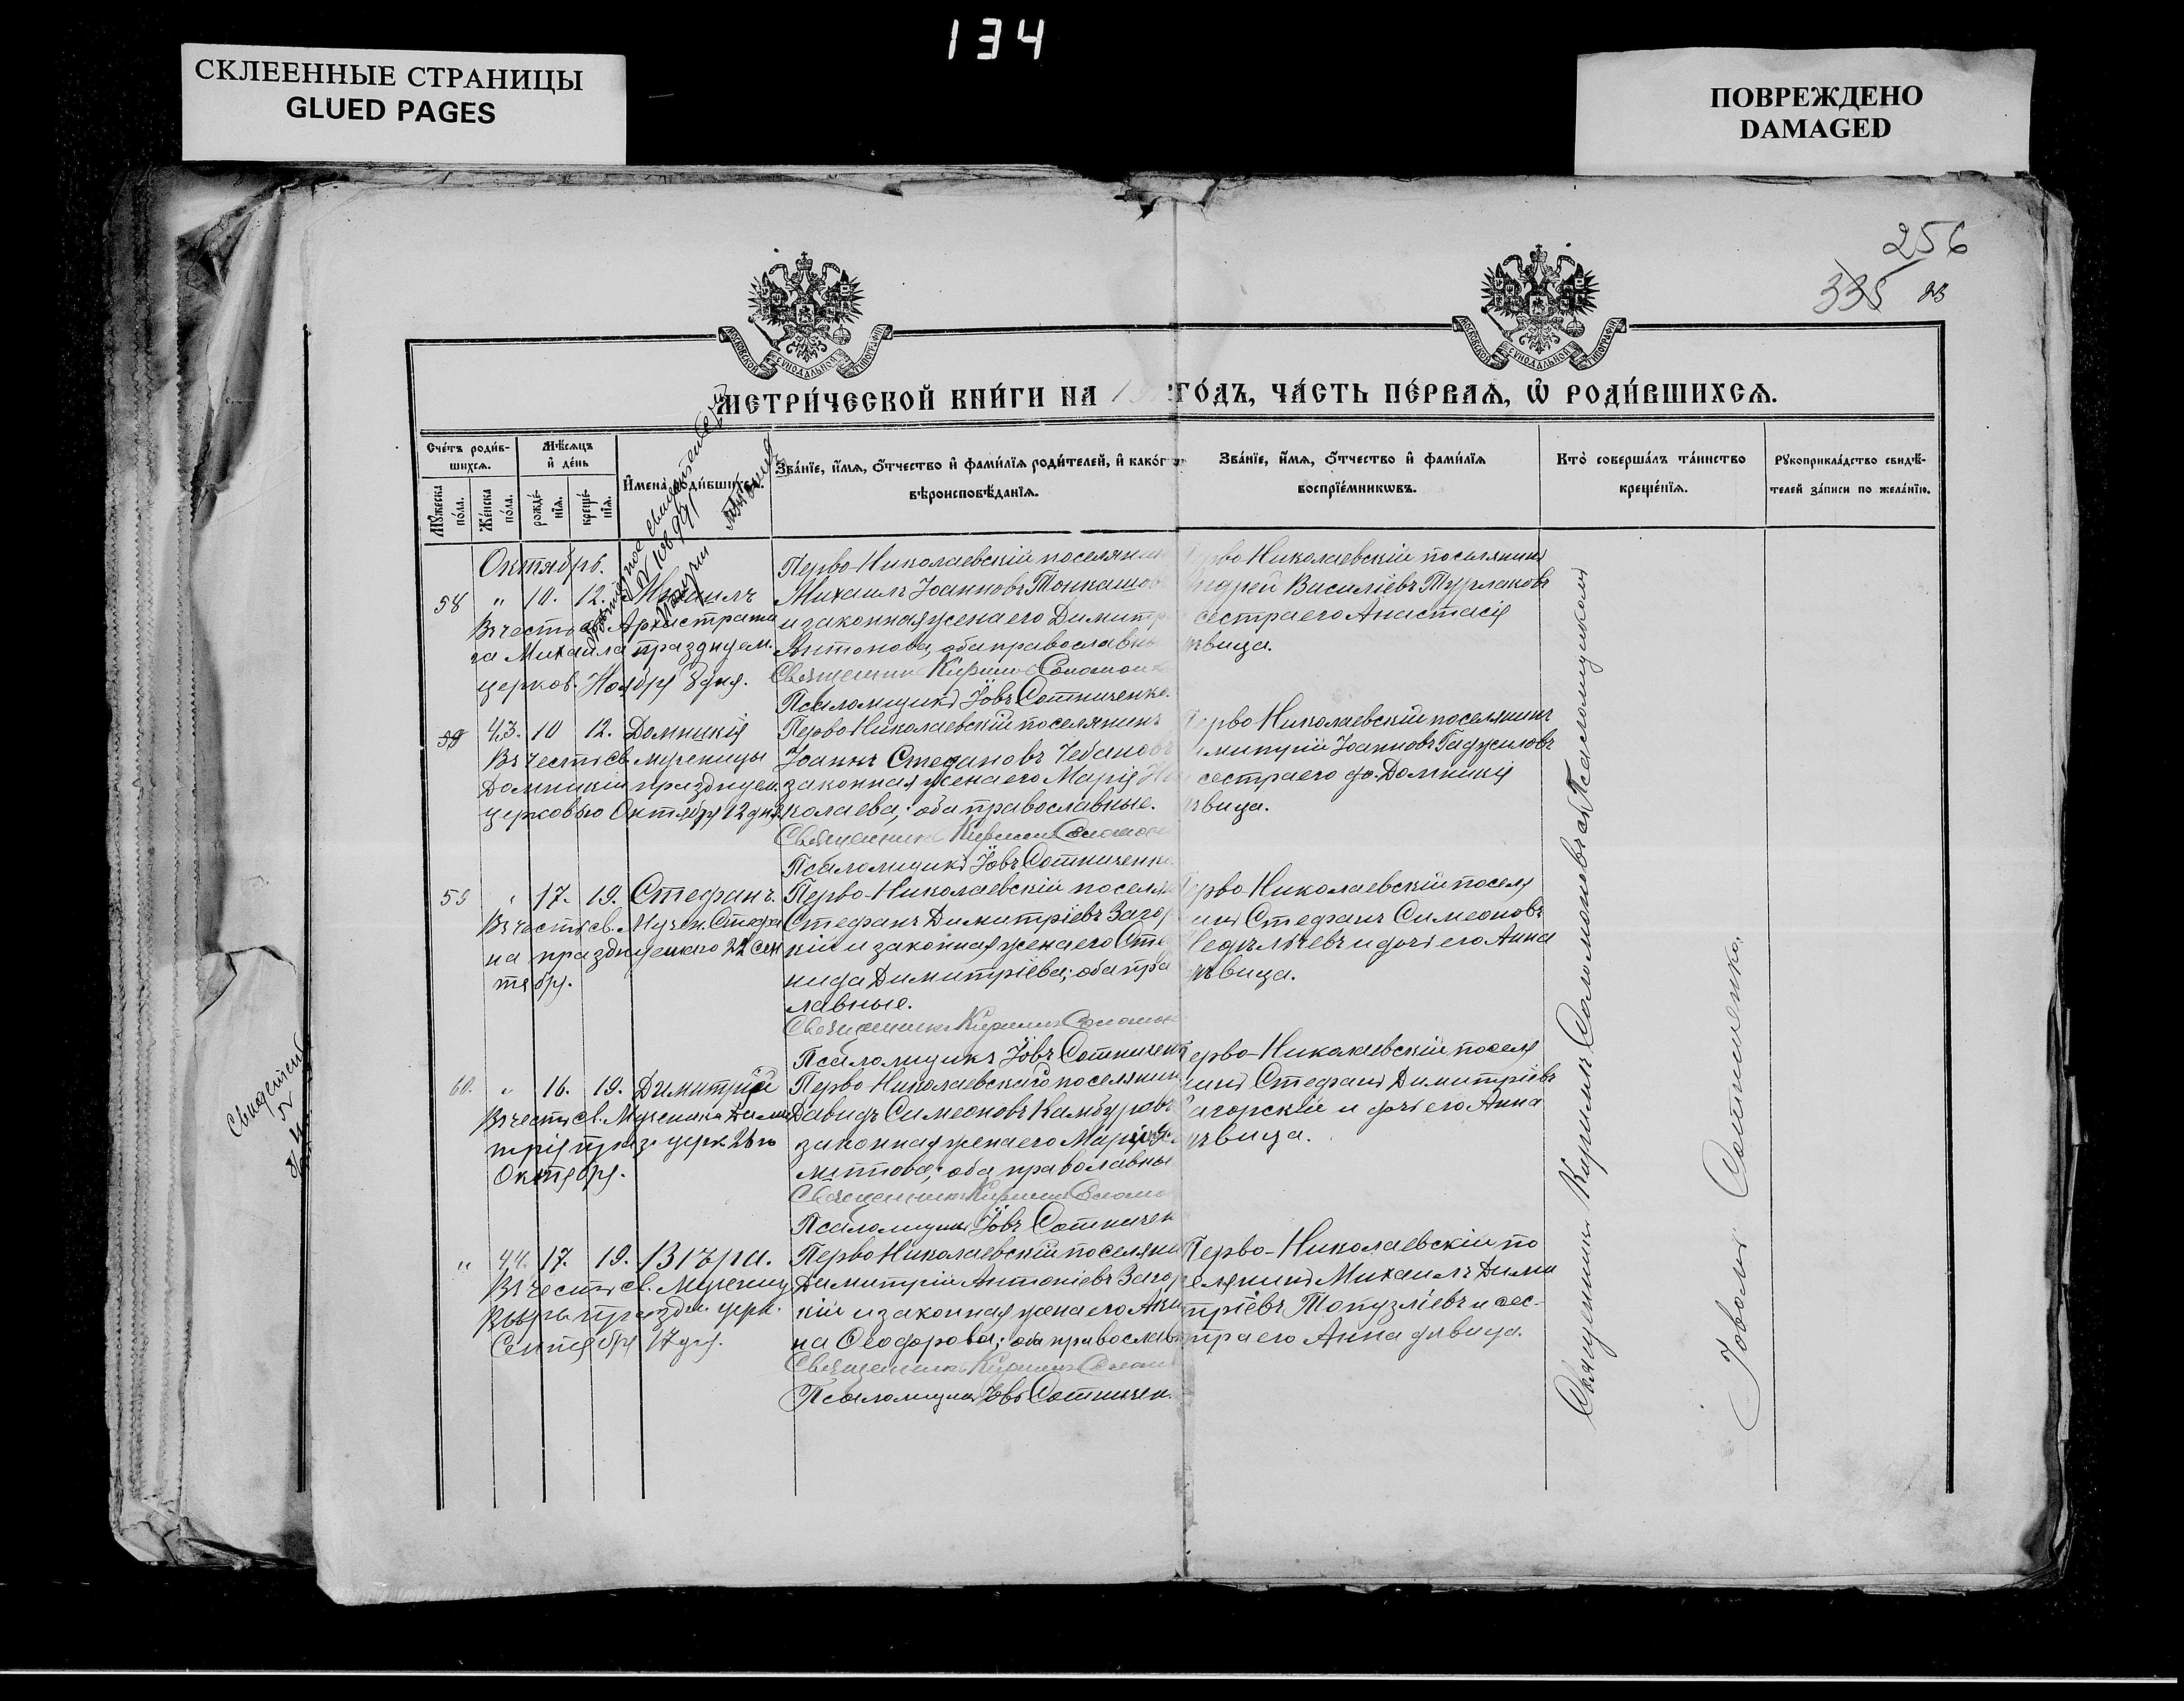 134
СКЛЕЕННЫЕ СТРАНИЦЫ
GLUED PAGES
ПОВРЕЖДЕНО
DAMAGED
256
335
МОСКОВСКОЙ СУНОДАЛЬНОЙ ТИПОГРАФІИ
МОСКОВСКОЙ СУНОДАЛЬНОЙ ТИПОГРАФІИ
МЕТРИ́ЧЕСКОЙ КНИ́ГИ НА 1 ГО́ДЪ, ЧА́СТЬ ПЕ́РВАѦ, Ѡ҆ РОДИ́ВШИХСѦ.
Сче́тъ роди́в-
шихсѧ.
Мꙋ́жеска по́ла.
Же́нска по́ла.
Мѣ́сѧцъ и҆ де́нь
рожде́-
нїѧ.
креще́-
нїѧ.
И҆мена̀ роди́вшихсѧ.
Зва́нїе, и҆́мѧ, ѻ҆́тчество и҆ фами́лїѧ роди́телей, и҆ како́г
вѣроисповѣ́данїѧ.
Зва́нїе, и҆́мѧ, ѻ҆́тчество и҆ фами́лїѧ
воспрїе́мникѡвъ.
Кто̀ соверша́лъ та́инство
креще́нїѧ.
Рꙋкоприкла́дство свидѣ́-
телей за́писи по жела́нїю.
Октябрь.
58 " 10. 12. Михаилъ
Въ честь св. Архистрати
га Михаила празднуем.
церков. Ноября 8 дня.
Перво-Николаевскій поселянин
Михаилъ Іоанновъ
и законная жена его Димитр
Антонова, оба православн
Священникъ Кирилъ Соломон
Псаломщикъ Іовъ Сотниченко.
рво Николаевскій поселянинъ
ндрей Василіевъ Турлаковъ
сестра его Анастасія
ѣвица.
59 43. 10 12. Домникія
Въ честь св. мученицы
Домникіи празднуем.
церковью Октября 12 дня
Перво Николаевскій поселянинъ
Іоаннъ Стефановъ Чебановъ
законная жена его Марія Ни
колаева; оба православные.
Священникъ Кирилъ Соломон
Псаломщикъ Іовъ Сотниченко
рво Николаевскій поселянинъ
имитрій Іоанновъ Гаджиловъ
сестра его Домникія
ѣвица.
59 " 17. 19. Стефанъ.
Въ честь св. Мучен. Стефа
на празднуемаго 22 сен
тября.
Перво-Николаевскій поселян
Стефанъ Димитріевъ Загор
кій и законная жена его Сте
нида Димитріева; оба пра
лавные.
Священникъ Кирилъ Соломон
Псаломщикъ Іовъ Сотничен
ерво-Николаевскій поселя
нинъ Стефанъ Симеоновъ
Недѣльчевъ и дочь его Анна
ѣвица.
60. " 16. 19. Димитрій
Въ честь св. Мученика Дими
трія празд. церк. 26го
Октября.
Перво Николаевскій поселянин
Давидъ Симеоновъ Камбуровъ
законная жена его Марія
оба православны
Священникъ Кирилъ Соломо
Псаломщикъ Іовъ Сотничен
ерво-Николаевскій поселя
нинъ Стефанъ Димитріевъ
Загорскій и дочь его Анна
ѣвица.
" 44. 17. 19. Вѣра.
Въ честь св. Мучениц
Вѣры праздн. церк.
Сентября 17 дня.
Перво Николаевскій поселяни
Димитрій Антоніевъ Загор
кій и законная жена его Аки
на Ѳеодорова; оба православн
Священникъ Кирилъ Соломо
Псаломщикъ Іовъ Сотничен.
Перво-Николаевскій по
селянинъ Михаилъ Дими
тріевъ Топузліевъ и сес-
тра его Анна дѣвица.
Священникъ Кирилъ Соломоновъ съ Псаломщикомъ
Іовомъ Сотниченко.